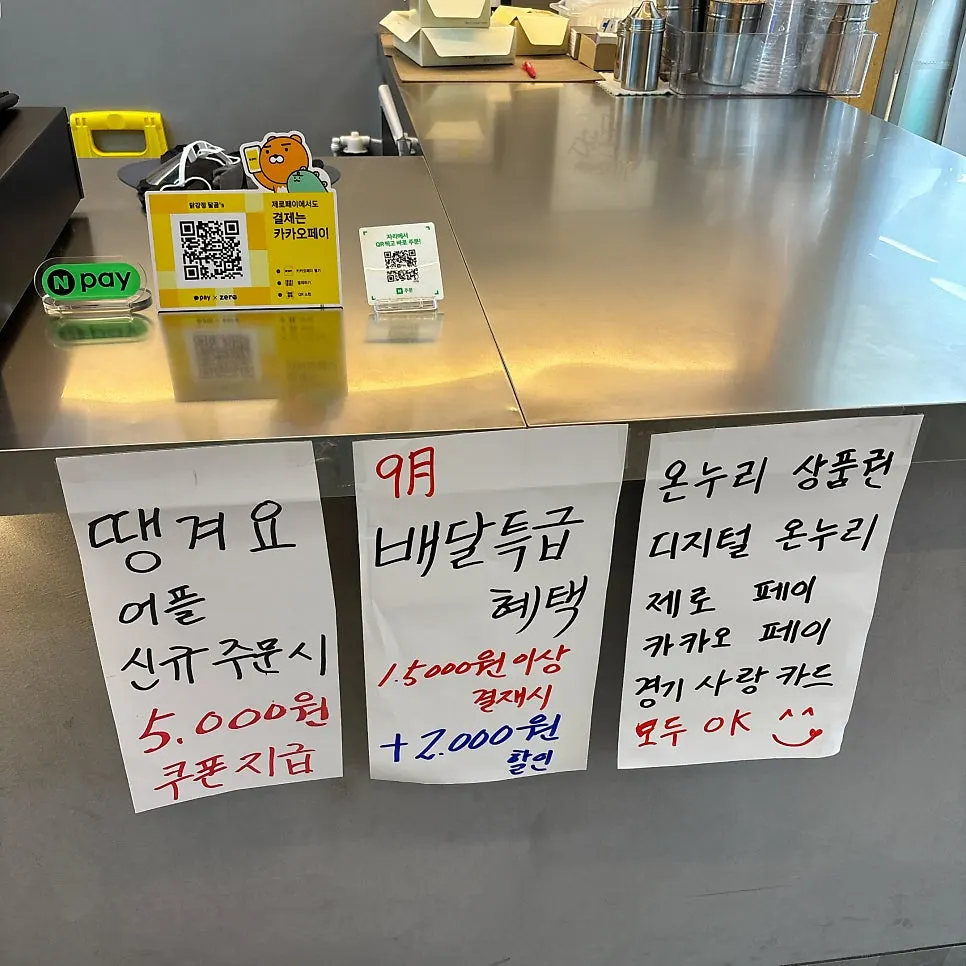 N pay
닭강정 팔곰's
제로페이에서도
결제는
카카오페이
pay × zero
자리에서
QR찍고 바로 주문!
N 주문
땡겨요
어플
신규주문시
5.000원
쿠폰지급
9月
배달특급
혜택
15000원이상
결재시
+2.000원
할인
온누리 상품권
디지털 온누리
제로 페이
카카오 페이
경기사랑카드
모두 OK ^^